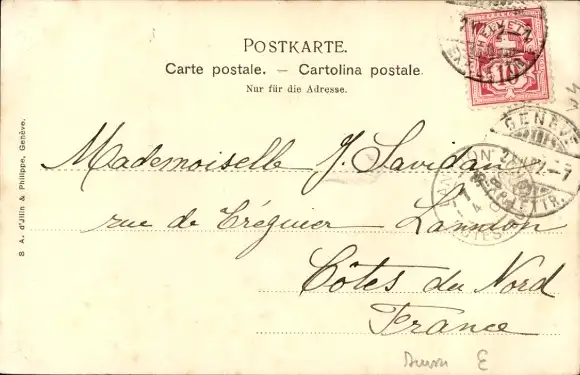 POSTKARTE.
Carte postale. — Cartolina postale.
Nur für die Adresse.
10
GENÈVE
Mademoiselle J. Savidan
rue de Tréguier Lannion
Côtes du Nord
France
S A. d'Jllin & Philippe, Genève.
E